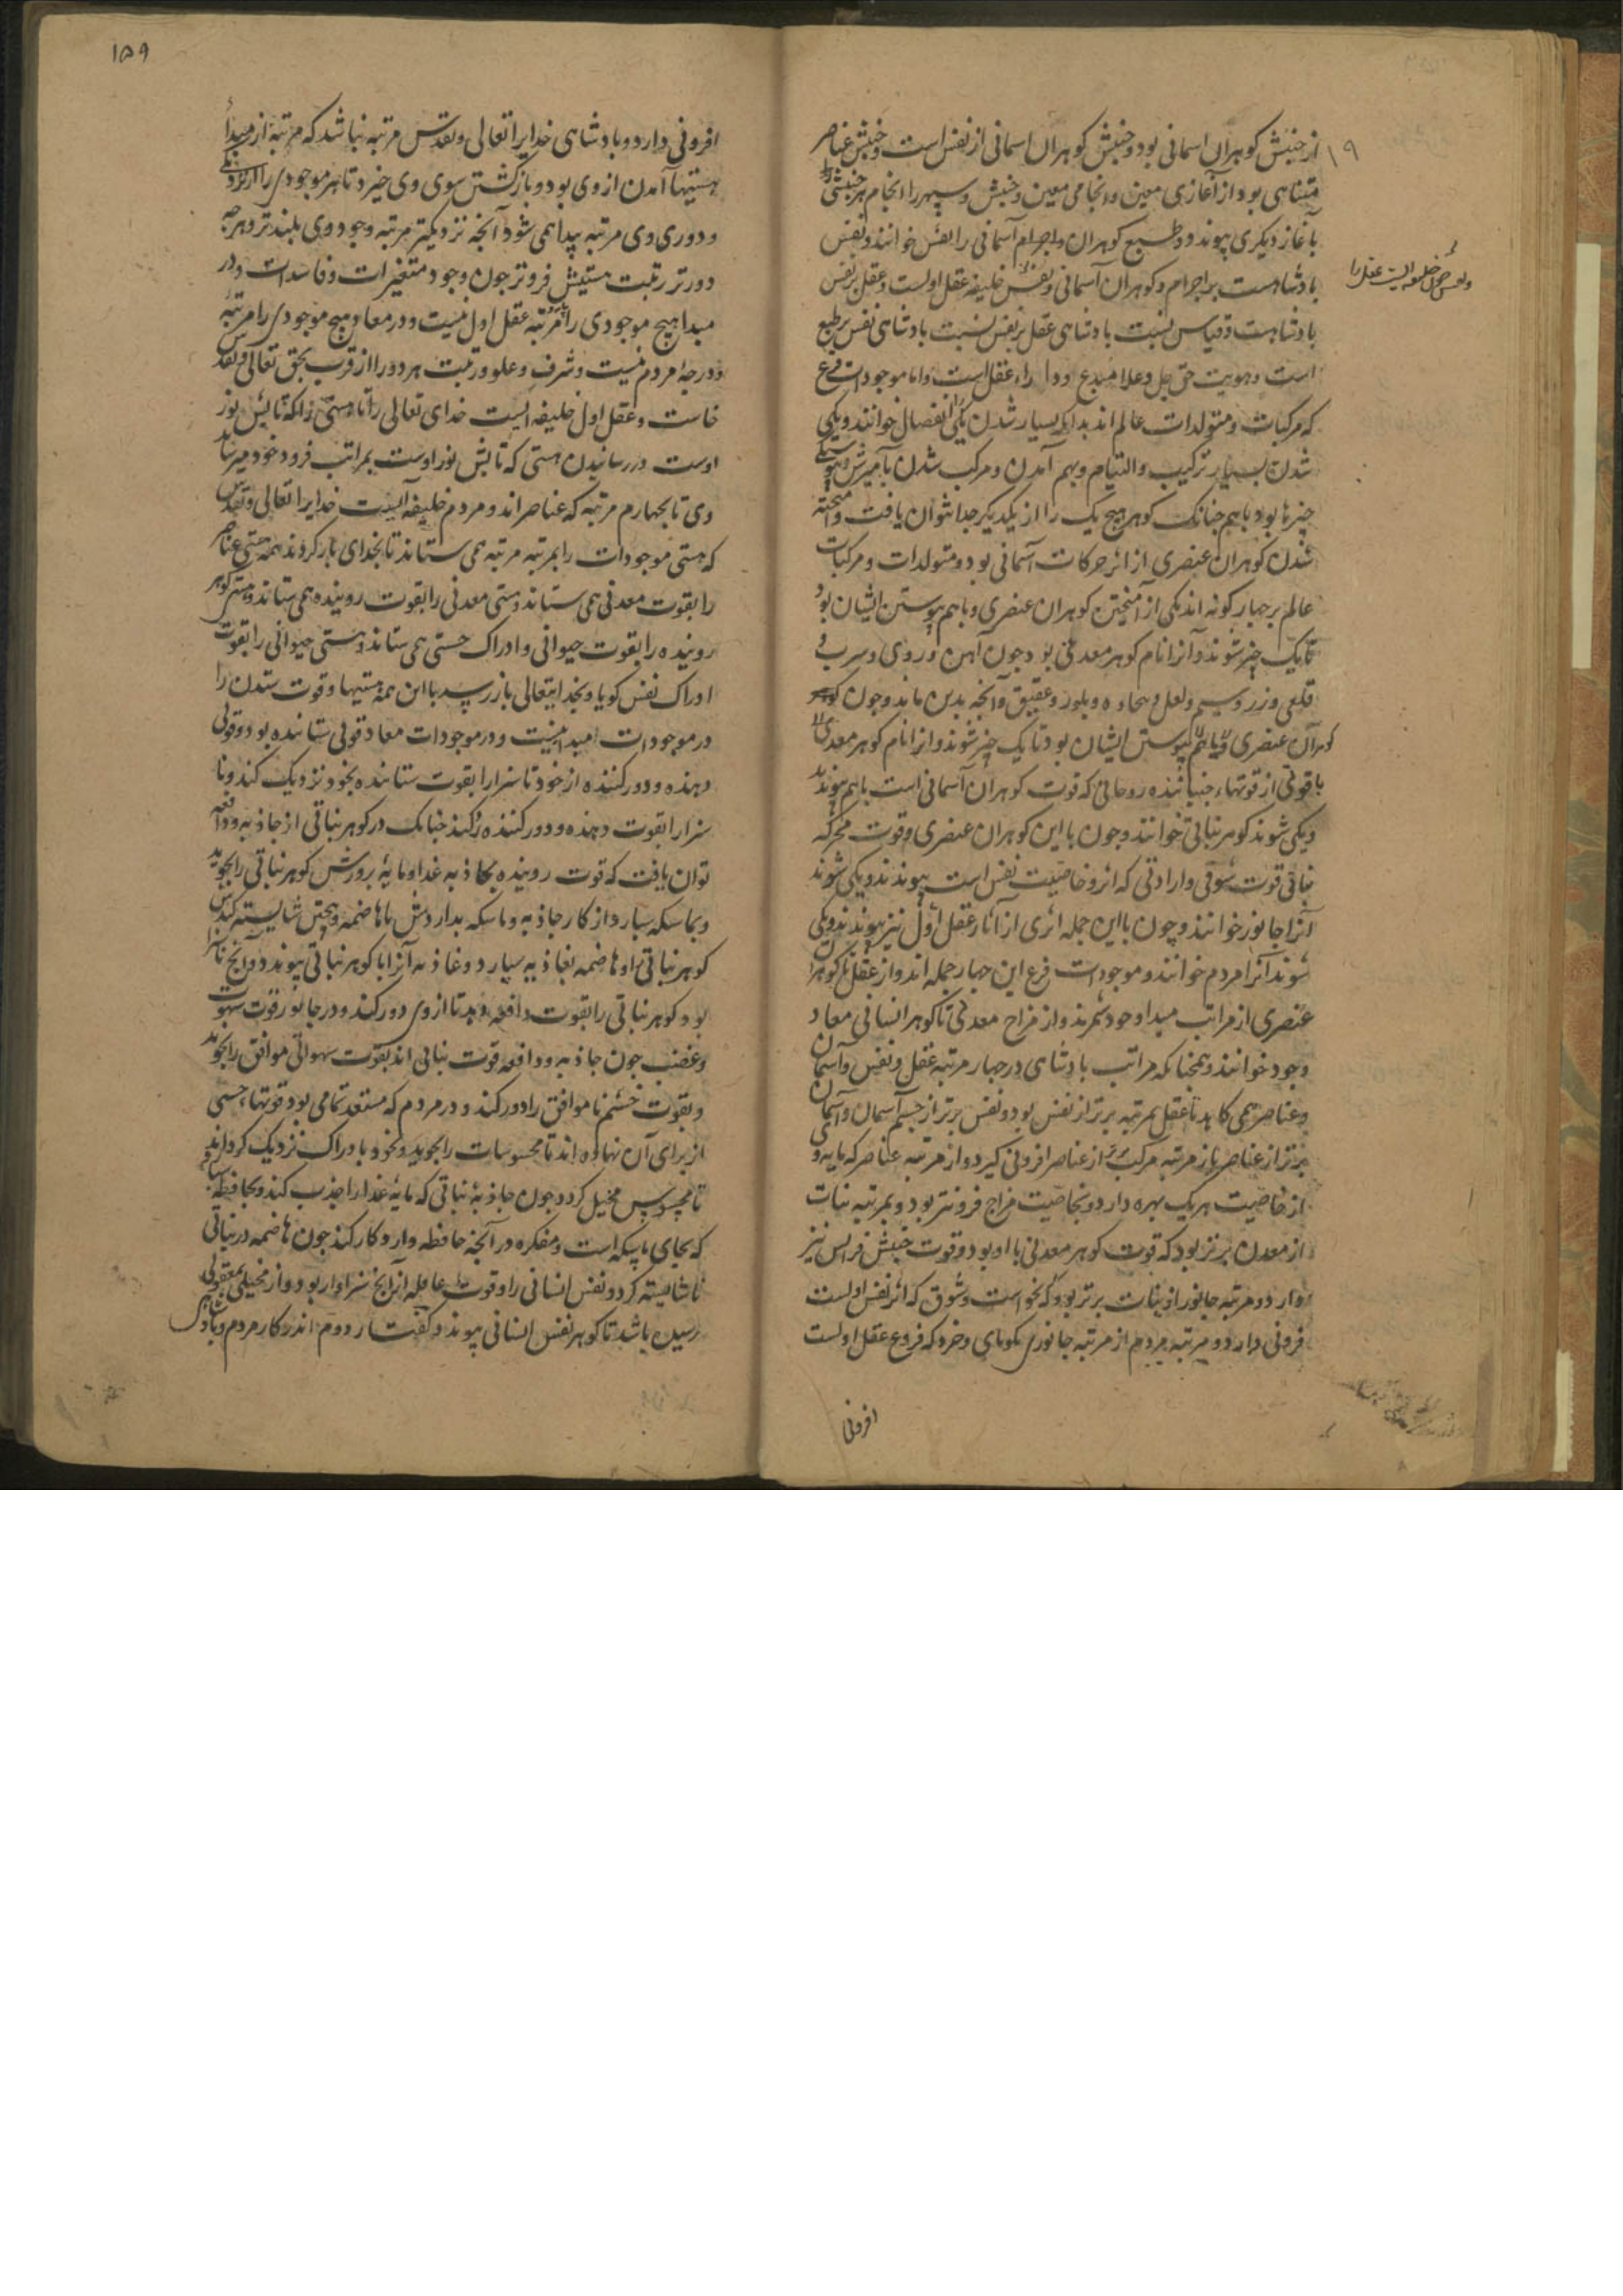 از جنبش کوهران اسمانی بود و جنبش کوهران اسمانی از نفس است و جنبش عناصر
متناهی بود از آغازی معین و انجامی معین و جنبش سپهر را انجام هر جنبشی
بآغاز دیکری پیوندد و طبیع کوهران و اجرام آسمانی را نفس خوانند و نفس
بادشاهست بر اجرام و کوهران آسمانی و نفس خلیفه عقل اولست و عقل بر نفس
بادشاهست و قیاس نسبت بادشاهی عقل بر نفس نسبت بادشاهی نفس بر طبع
است و هویت حق جل و علا مبدع وراء عقل است و اما موجودات فرع
که مرکبات و متولدات عالم اند بدانکه بسیار شدن یکی را انفصال خوانند و یکی
شدن بسیار ترکیب و التیام و بهم آمدن و مرکب شدن بآمیزش
چیزها بود باهم چنانک کوهر هیچ یک را از یکدیکر جدا نتوان یافت و آمیخته
شدن کوهران عنصری از اثر حرکات آسمانی بود و متولدات و مرکبات
عالم بر چهار کونه اند یکی از آمیختن کوهران عنصری و باهم پیوستن ایشان بود
تا یک چیز شوند و آنرا نام کوهر معدنی بود چون آهن و روی و سرب و
قلعی و زر و سیم و لعل و بیجاده و بلور و عقیق و آنچه بدین ماند و چون
کوهران عنصری و باهم پیوستن ایشان بود تا یک چیز شوند و انرا نام کوهر معدنی
با قوتی از قوتهاء جنباننده روحانی که قوت کوهران آسمانی است باهم پیوندند
و یکی شوند کوهر نباتی خوانند و چون با این کوهران عنصری و قوت محرکه
نباتی قوت شوقی و ارادتی که اثر و خاصیت نفس است پیوندند و یکی شوند
آنرا جانور خوانند و چون با این جمله اثری از آثار عقل اول نیز پیوندند و یکی
شوند آنرا مردم خوانند و موجودات فرع این چهار جمله اند و از عقل تا کوهر
عنصری از مراتب مبدا وجود شمرند و از مزاج معدنی تا کوهر انسانی معاد
وجود خوانند و همچنانکه مراتب بادشاهی در چهار مرتبه عقل و نفس و آسمان
و عناصر همی کاهد تا عقل بمرتبه برتر از نفس بود و نفس برتر از جسم آسمان و آسمان
برتر از عناصر باز مرتبه مرکب از عناصر افزونی کیرد و از مرتبه عناصر که مایه و
از خاصیت هر یک بهره دارد و بخاصیت مزاج فزونتر بود و بمرتبه نبات
از معدن برتر بود که قوت کوهر معدنی با او بود و قوت جنبش فزایش نیز
دارد و مرتبه جانور از نبات برتر بود که بخواست و شوق که اثر نفس اولست
فزونی دارد و مرتبه مردم از مرتبه جانوری بکویای و خرد که فروع عقل اولست
افزونی
و نفس خلیفه ایست عقل را
۱۵۹
افزونی دارد و بادشاهی خدایرا تعالی و تقدس مرتبه نباشد که مرتبه از مبدأ
هستیها آمدن از وی بود و بازکشتن سوی وی خیزد تا هر موجودی را از نزدیکی
و دوری وی مرتبه پیدا همی شود آنچه نزدیکتر مرتبه وجود وی بلندتر و هرچه
دورتر رتبت هستیش فروتر چون وجود متغیرات و فاسدات و در
مبدا هیچ موجودی را مرتبه عقل اول نیست و در معاد هیچ موجودی را مرتبه
و درجه مردم نیست و شرف و علو رتبت هر دو را از قرب بحق تعالی و تقدس
خاست و عقل اول خلیفه ایست خدای تعالی را تا هستی زانکه تابش نور
اوست در رسانیدن هستی که تابش نور اوست بمراتب فرود خود میرساند
وی تا بچهارم مرتبه که عناصر اند و مردم خلیفه ایست خدایرا تعالی و تقدس
که هستی موجودات را بمرتبه مرتبه همی ستاند تا بخدای باز کردند همه هستی عناصر
را بقوت معدنی همی ستاند و هستی معدنی را بقوت روینده همی ستاند و هستی کوهر
روینده را بقوت حیوانی و ادراک حسی همی ستاند و هستی حیوانی را بقوت
ادراک نفس کویا و بخدایتعالی باز رسد با این همه هستیها و قوت ستدن را
در موجودات مبدا نیست و در موجودات معاد قوتی ستاننده بود و قوتی
دهنده و دور کننده از خود تا سزا را بقوت ستاننده بخود نزدیک کند و نا
سزا را بقوت دهنده و دور کننده رد کند چنانک در کوهر نباتی از جاذبه و دافعه
توان یافت که قوت روینده بجاذبه غذا و مایه پرورش کوهر نباتی را بجوید
و بماسکه سپارد از کار جاذبه و ماسکه بداردش تا هاضمه و بپختن شایسته کندش
کوهر نباتی را و هاضمه بغاذیه سپارد و غاذیه آنرا با کوهر نباتی پیوندد و آنچ ناسزا
بود کوهر نباتی را بقوت دافعه دهد تا از وی دور کند و در جانور قوت شهوت
و غضب چون جاذبه و دافعه قوت نباتی اند بقوت شهوانی موافق را بجوید
و بقوت خشم ناموافق را دور کند و در مردم که مستعد تمامی بود قوتهاء حسی
از برای آن نهاده اند تا محسوسات را بجوید و بخود بادراک نزدیک کرداند
تا محسوس مخیل کردد چون جاذبهٔ نباتی که مایهٔ غذا را جذب کند و بحافظه سپارد
که بجای ماسکه است و مفکره در آنچه حافظه دارد کار کند چون هاضمه در نباتی
تا شایسته کردد نفس انسانی را و قوت عاقله از آنچ سزاوار بود و از مخیلی بمعقولی
رسیده باشد تا کوهر نفس انسانی پیوندد کفتار دوم اندر کار مردم و بادشاهی